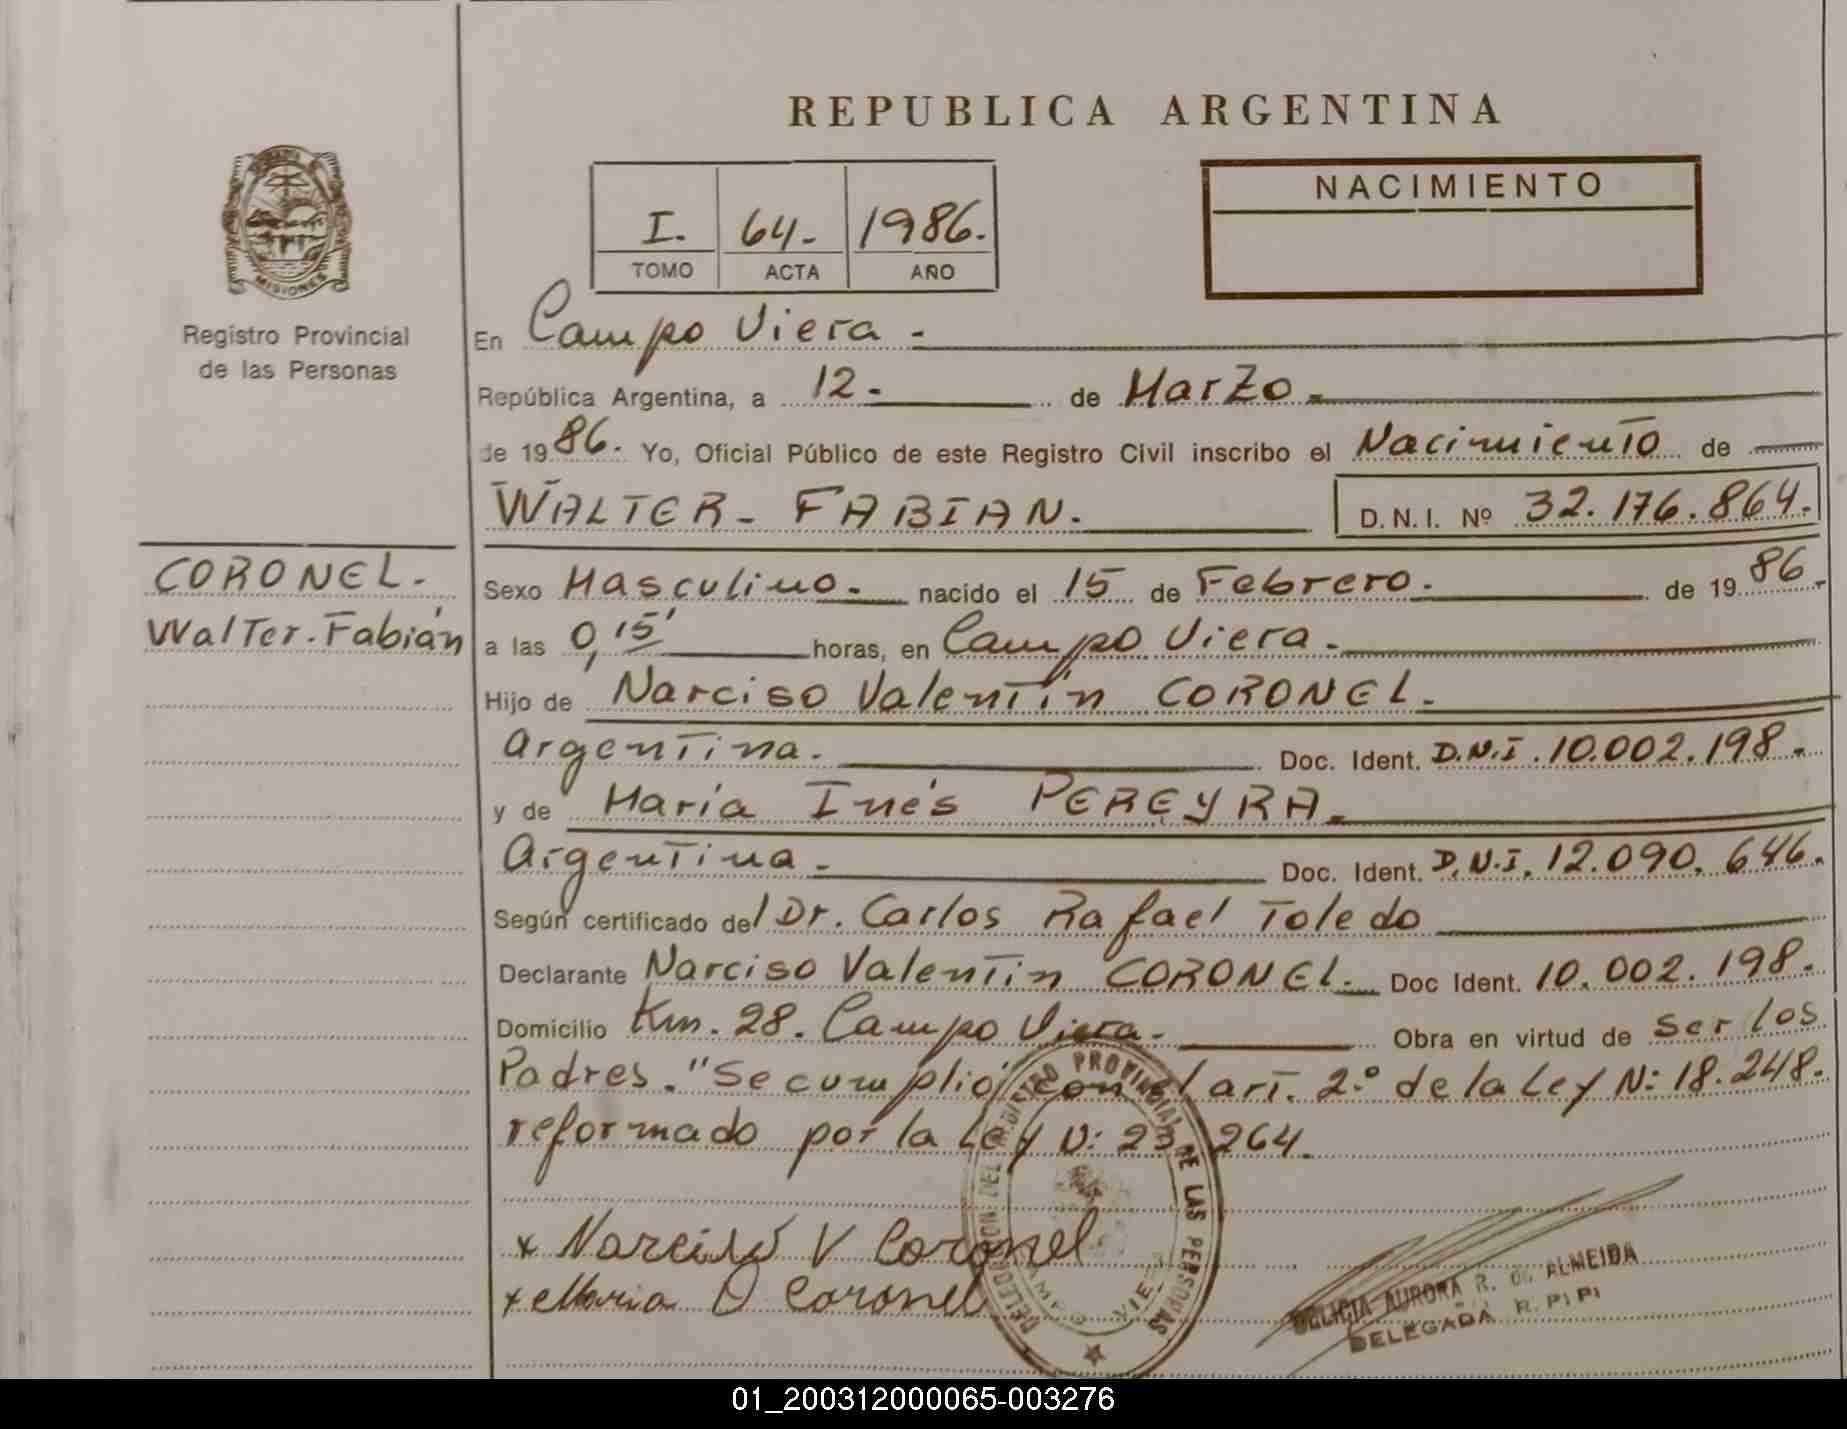 REPUBLICA ARGENTINA
I. 64- 1986.
TOMO ACTA AÑO
NACIMIENTO
MISIONES
Registro Provincial
de las Personas
CORONEL.
Walter. Fabián
En Campo Viera -
República Argentina, a 12- de Marzo.
de 1986. Yo, Oficial Público de este Registro Civil inscribo el Nacimiento de
WALTER- FABIAN.
D.N.I. Nº 32.176.864.
Sexo Masculino. nacido el 15 de Febrero. de 1986.
a las 0,15' horas, en Campo Viera.
Hijo de Narciso Valentín CORONEL.
Argentina. Doc. Ident. D.N.I. 10.002.198.
y de María Inés PEREYRA.
Argentina. Doc. Ident. D.N.I. 12.090.646.
Según certificado del Dr. Carlos Rafael Toledo
Declarante Narciso Valentín CORONEL. Doc Ident. 10.002.198.
Domicilio Km. 28. Campo Viera. Obra en virtud de ser los
Padres. "Se cumplió con el art. 2.º de la Ley Nº 18.248.
reformado por la Ley Nº 264.
DELEGACION DEL REGISTRO PROVINCIAL DE LAS PERSONAS
CAMPO VIERA
x Narciso V Coronel
x Maria Coronel
DELICIA AURORA R. DE ALMEIDA
DELEGADA R. P. I P I
01_200312000065-003276